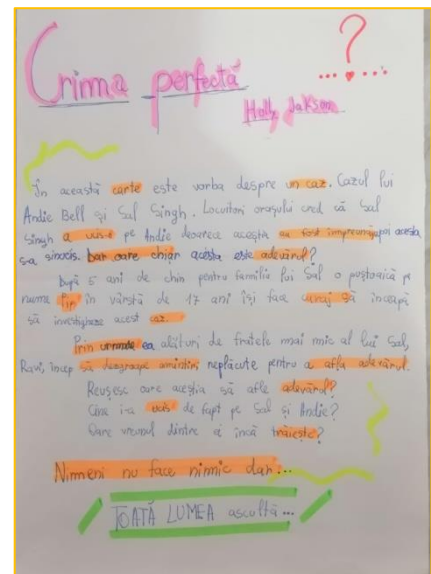 ?
Crima perfectă
Holly Jakson
În această carte este vorba despre un caz. Cazul lui
Andie Bell și Sal Singh. Locuitori orașului cred că Sal
Singh a ucis-o pe Andie deoarece aceștia au fost împreună, apoi acesta
s-a sinucis. Dar oare chiar acesta este adevărul?
După 5 ani de chin pentru familia lui Sal o puștoaică pe
nume Pip în vârstă de 17 ani își face curaj să înceapă
să investigheze acest caz.
Prin urmare ea alături de fratele mai mic al lui Sal,
Ravi, încep să dezgroape amintiri neplăcute pentru a afla adevărul.
Reușesc oare aceștia să afle adevărul?
Cine i-a ucis de fapt pe Sal și Andie?
Oare vreunul dintre ei încă trăiește?
Nimeni nu face nimic dar...
TOATĂ LUMEA ascultă...